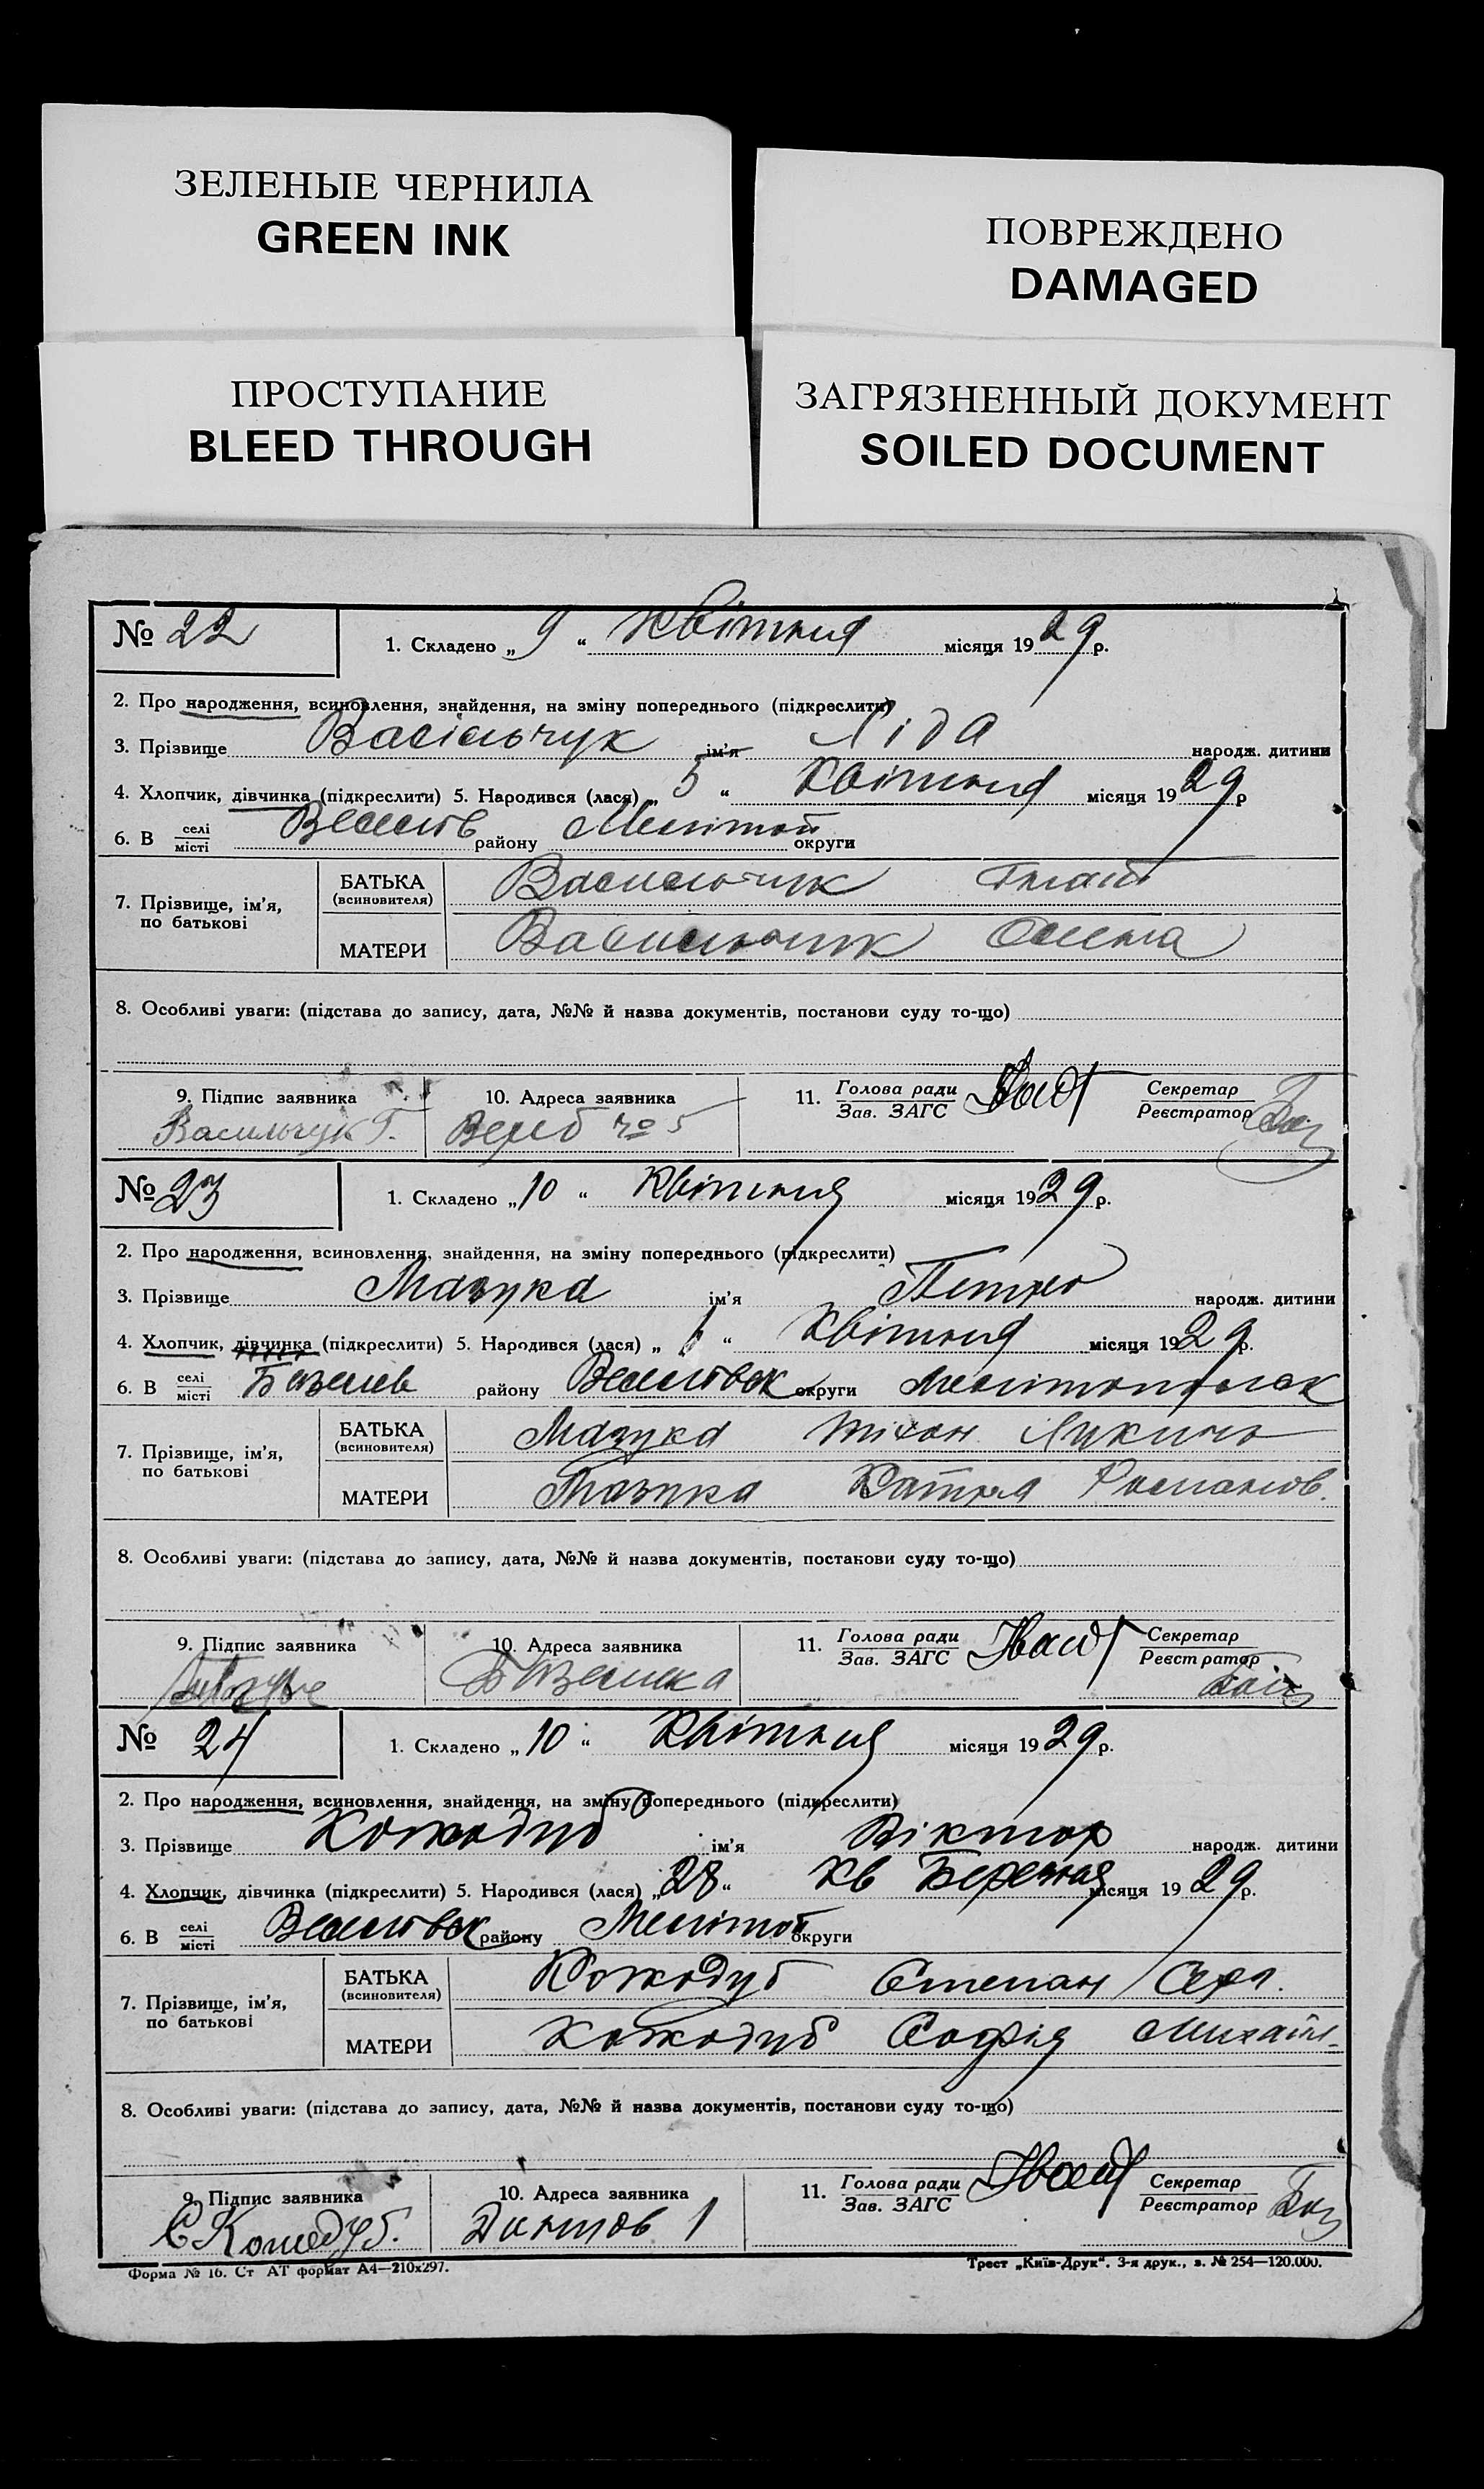 ЗЕЛЕНЫЕ ЧЕРНИЛА
GREEN INK
ПОВРЕЖДЕНО
DAMAGED
ПРОСТУПАНИЕ
BLEED THROUGH
ЗАГРЯЗНЕННЫЙ ДОКУМЕНТ
SOILED DOCUMENT
№ 22 1. Складено „ 9 “ Квітня місяця 1929 р.
2. Про народження, всиновлення, знайдення, на зміну попереднього (підкреслити)
3. Прізвище Васільчук ім’я Ліда народж. дитини
4. Хлопчик, дівчинка (підкреслити) 5. Народився (лася) „ 5 “ Квітня місяця 1929 р
6. В селі/місті району Мелітоп округи
7. Прізвище, ім’я, по батькові
БАТЬКА (всиновителя) Васильчук
МАТЕРИ Васильчук Олена
8. Особливі уваги: (підстава до запису, дата, №№ й назва документів, постанови суду то-що)
9. Підпис заявника 10. Адреса заявника 11. Голова ради/Зав. ЗАГС Секретар/Реєстратор
Васильчук Г. № 5
№ 23 1. Складено „ 10 “ Квітня місяця 1929 р.
2. Про народження, всиновлення, знайдення, на зміну попереднього (підкреслити)
3. Прізвище Мазука ім’я Петро народж. дитини
4. Хлопчик, дівчинка (підкреслити) 5. Народився (лася) „ “ Квітня місяця 1929 р.
6. В селі/місті району округи Мелітопольск
7. Прізвище, ім’я, по батькові
БАТЬКА (всиновителя) Мазука Тіхон
МАТЕРИ Мазука Катря Романов.
8. Особливі уваги: (підстава до запису, дата, №№ й назва документів, постанови суду то-що)
9. Підпис заявника 10. Адреса заявника 11. Голова ради/Зав. ЗАГС Секретар/Реєстратор
№ 24 1. Складено „ 10 “ Квітня місяця 1929 р.
2. Про народження, всиновлення, знайдення, на зміну попереднього (підкреслити)
3. Прізвище Кожодуб ім’я Віктор народж. дитини
4. Хлопчик, дівчинка (підкреслити) 5. Народився (лася) „ 28 “ Кв Березня місяця 1929 р.
6. В селі/місті району Мелітоп округи
7. Прізвище, ім’я, по батькові
БАТЬКА (всиновителя) Кожодуб Степан
МАТЕРИ Кожодуб Софія Михайл.
8. Особливі уваги: (підстава до запису, дата, №№ й назва документів, постанови суду то-що)
9. Підпис заявника 10. Адреса заявника 11. Голова ради/Зав. ЗАГС Секретар/Реєстратор
С Кожедуб. 1
Форма № 16. Ст АТ формат А4—210х297. Трест „Київ-Друк“. 3-я друк., з. № 254—120.000.